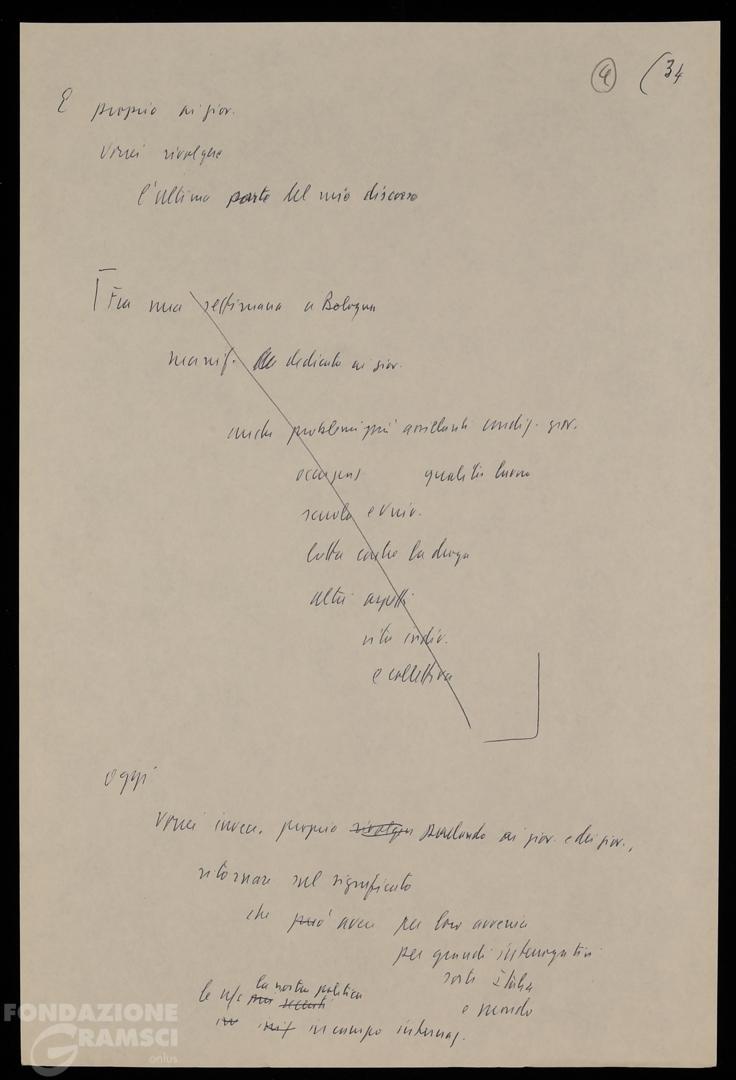 4 (34
E proprio ai giov.
vorrei rivolgere
l'ultima parte del mio discorso
Fra una settimana a Bologna
manif. dedicata ai giov.
anche problemi più assillanti condiz. giov.
occupaz qualità lavoro
scuola e univ.
lotta contro la droga
altri aspetti
vita indiv.
e collettiva
oggi
vorrei invece, proprio rivolgen parlando ai giov. e dei giov.,
ritornare sul significato
che può avere per loro avvenire
per grandi interrogativi
sorti Italia
e mondo
la nostra politica
le
in iniz in campo internaz.
FONDAZIONE
GRAMSCI
onlus